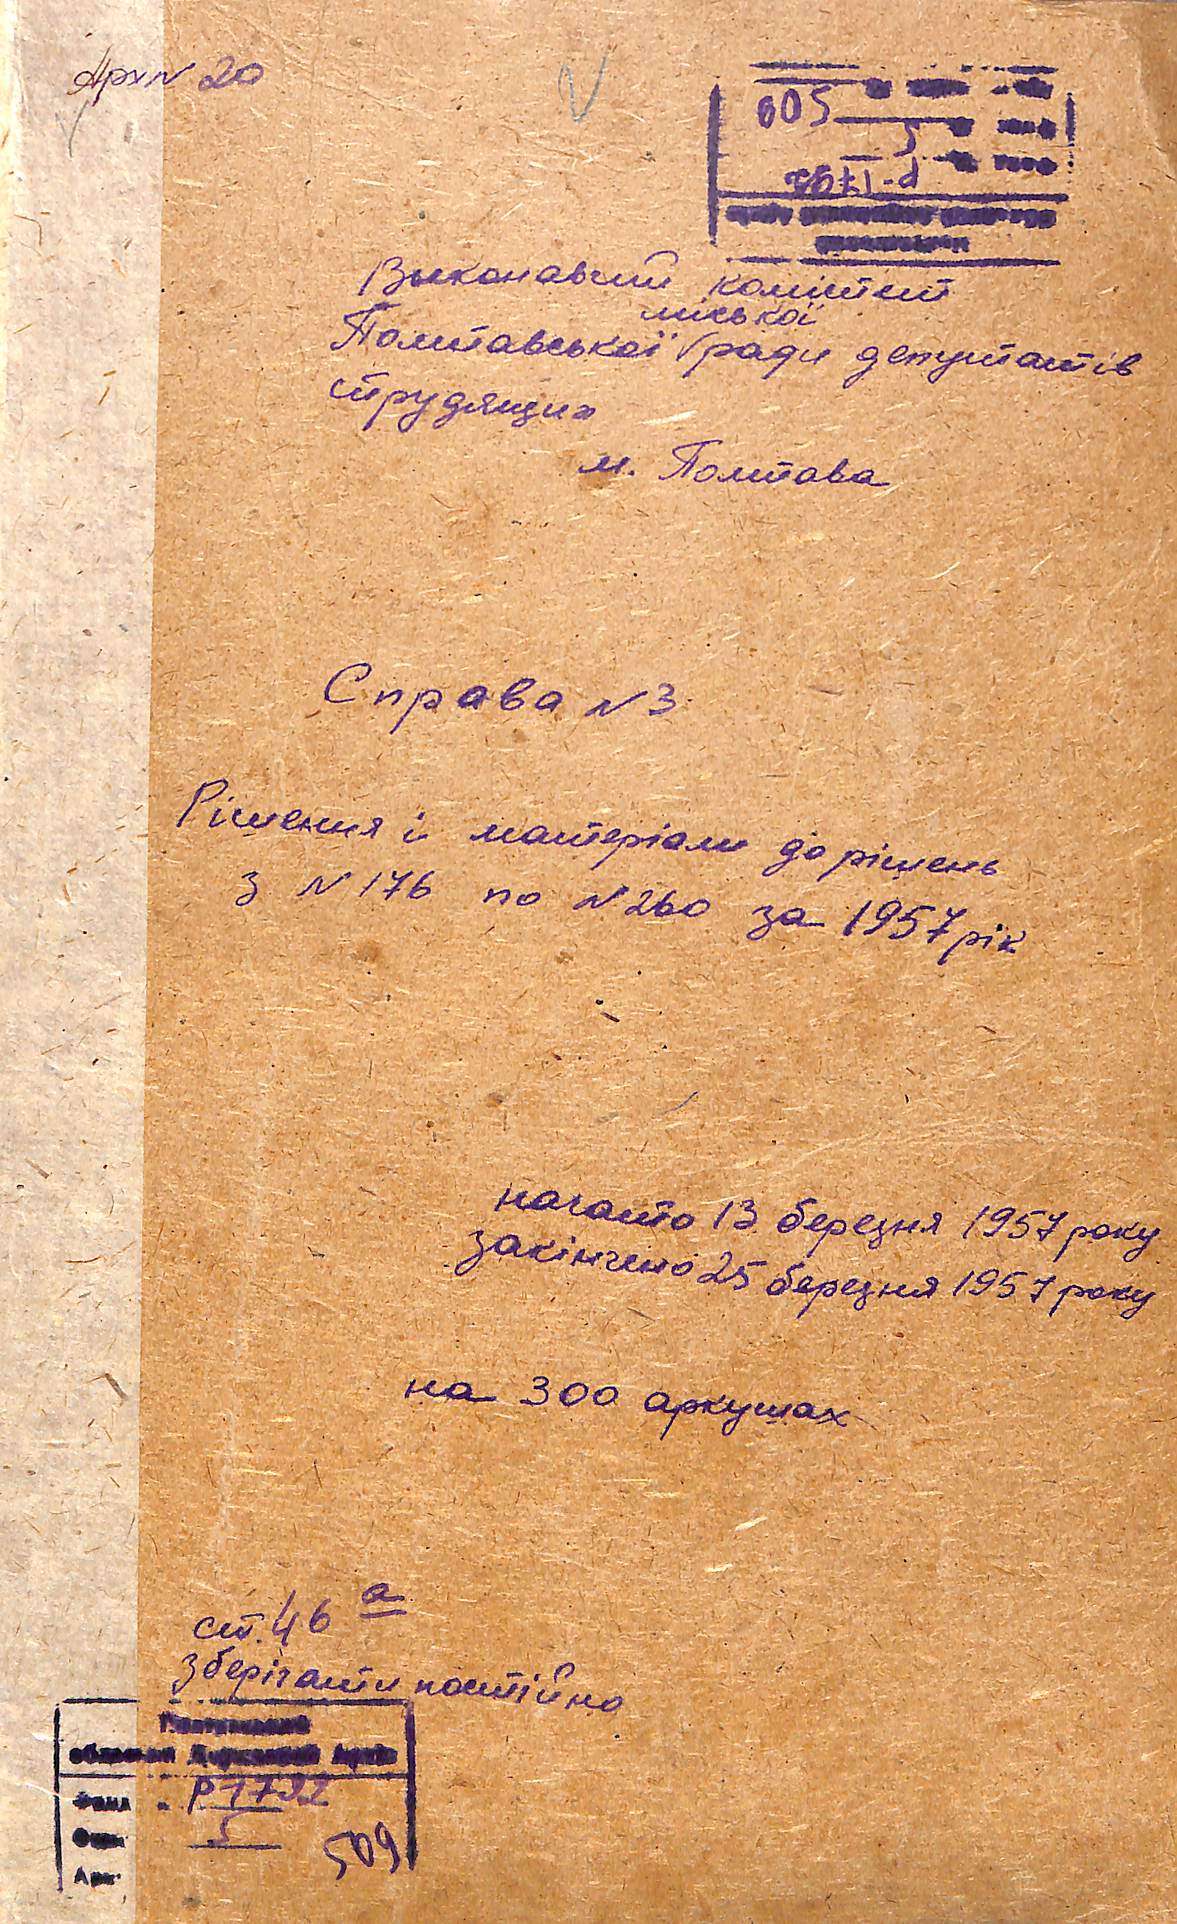 Арх N 20
Виконавчий комітет
міської
Полтавської ради депутатів
трудящих
м. Полтава
Справа N 3
Рішення і матеріали до рішень
з N 176 по N 260 за 1957 рік
начато 13 березня 1957 року
закінчено 25 березня 1957 року
на 300 аркушах
ст. 46 а
зберігати постійно
Полтавский
областной Державний Архів
Фонд Р 1792
5